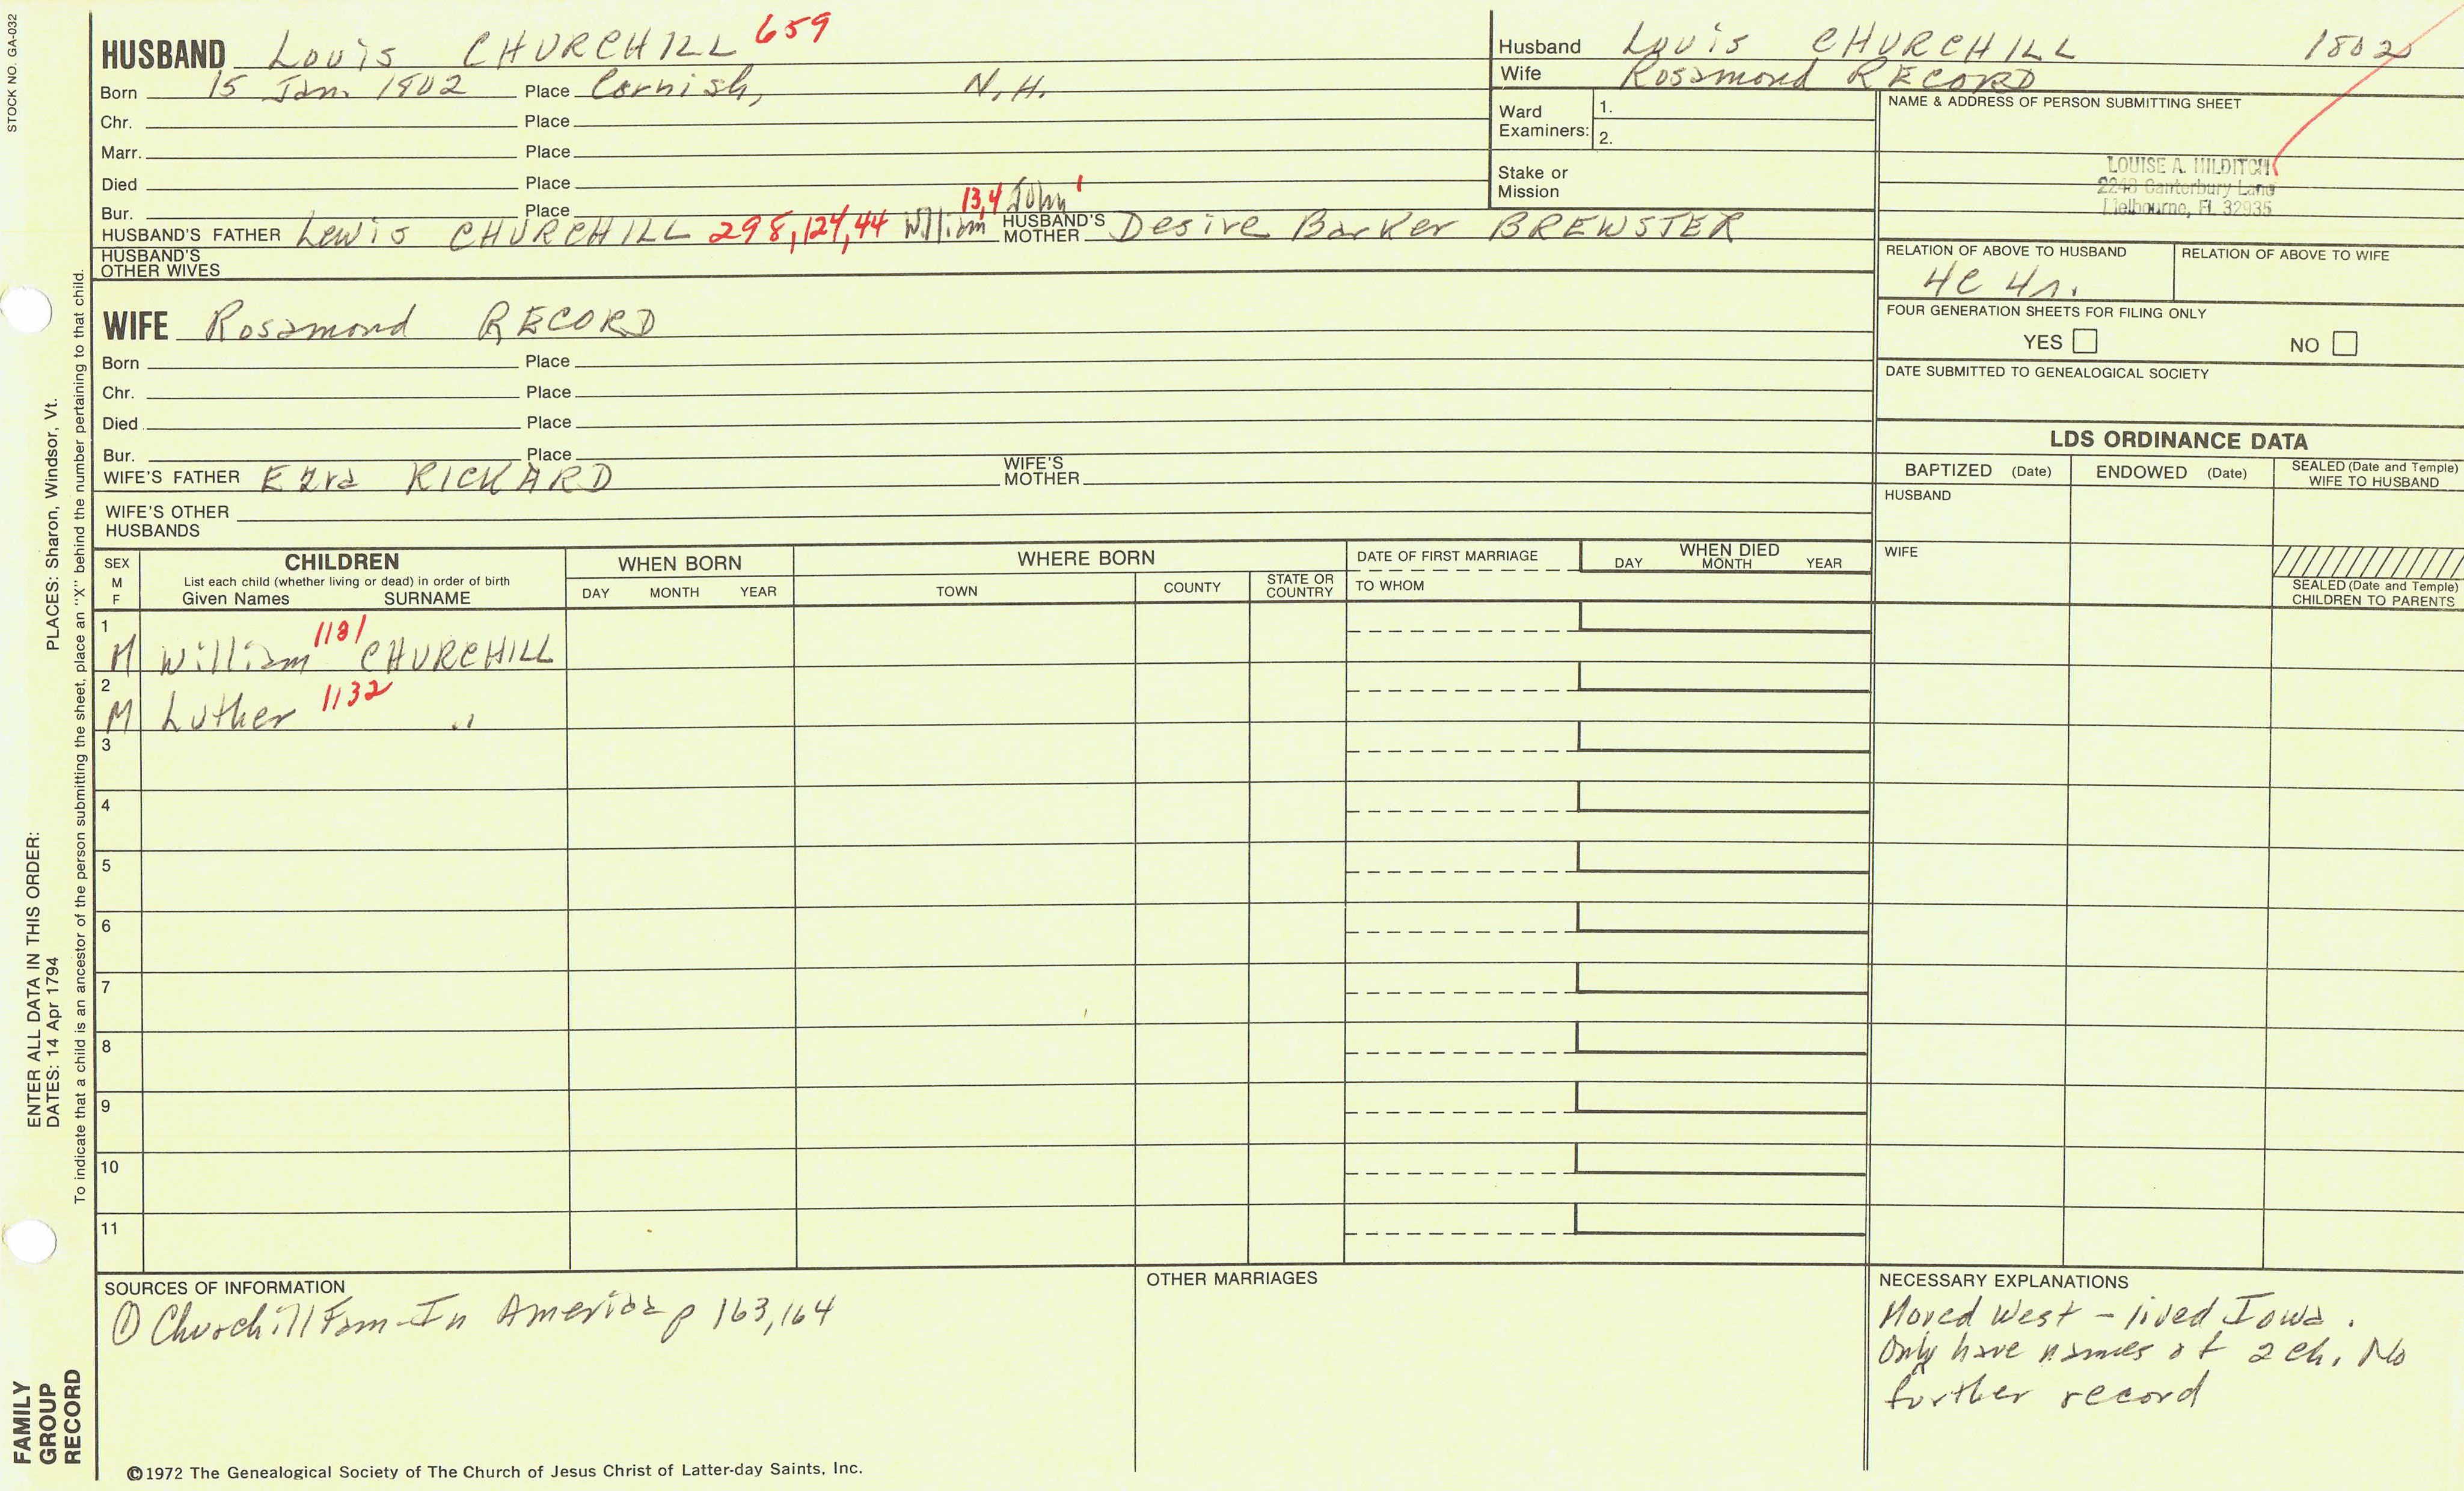 STOCK NO. GA-032
HUSBAND Louis CHURCHILL 659
Born 15 Jan. 1802 Place Cornish, N.H.
Chr. Place
Marr. Place
Died Place
Bur. Place
13,4 John 1
HUSBAND'S FATHER Lewis CHURCHILL 298,124,44 William HUSBAND'S MOTHER Desire Barker BREWSTER
HUSBAND'S OTHER WIVES
WIFE Rosamond RECORD
Born Place
Chr. Place
Died Place
Bur. Place
WIFE'S FATHER Ezra RICKARD WIFE'S MOTHER
WIFE'S OTHER HUSBANDS
Husband Louis CHURCHILL 1802
Wife Rosamond RECORD
Ward Examiners: 1.
2.
Stake or Mission
NAME & ADDRESS OF PERSON SUBMITTING SHEET
LOUISE A. HILDITCH
2240 Canterbury Lane
Melbourne, FL 32935
RELATION OF ABOVE TO HUSBAND
4C 4r.
RELATION OF ABOVE TO WIFE
FOUR GENERATION SHEETS FOR FILING ONLY
YES NO
DATE SUBMITTED TO GENEALOGICAL SOCIETY
LDS ORDINANCE DATA
BAPTIZED (Date) ENDOWED (Date) SEALED (Date and Temple) WIFE TO HUSBAND
HUSBAND
WIFE
SEALED (Date and Temple) CHILDREN TO PARENTS
SEX M F
CHILDREN
List each child (whether living or dead) in order of birth
Given Names SURNAME
WHEN BORN
DAY MONTH YEAR
WHERE BORN
TOWN COUNTY STATE OR COUNTRY
DATE OF FIRST MARRIAGE
TO WHOM
WHEN DIED
DAY MONTH YEAR
1
M William 1131 CHURCHILL
2
M Luther 1132 "
3
4
5
6
7
8
9
10
11
SOURCES OF INFORMATION
① Churchill Fam-In America p 163,164
OTHER MARRIAGES
NECESSARY EXPLANATIONS
Moved West - lived Iowa.
Only have names of 2 ch. No
further record
©1972 The Genealogical Society of The Church of Jesus Christ of Latter-day Saints, Inc.
FAMILY
GROUP
RECORD
ENTER ALL DATA IN THIS ORDER:
DATES: 14 Apr 1794
PLACES: Sharon, Windsor, Vt.
To indicate that a child is an ancestor of the person submitting the sheet, place an "X" behind the number pertaining to that child.